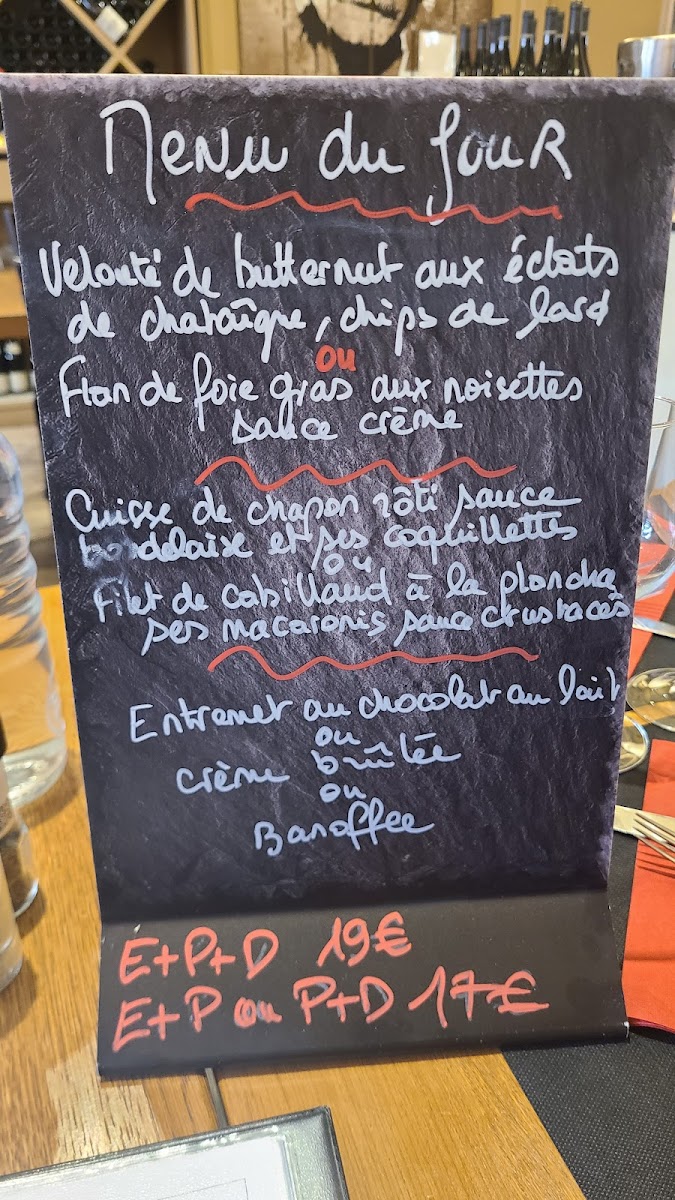 Menu du Jour
Velouté de butternut aux éclats
de chataîgne, chips de lard
ou
Flan de foie gras aux noisettes
sauce crème
Cuisse de chapon rôti sauce
bordelaise et ses coquillettes
ou
Filet de cabillaud à la plancha
ses macaronis sauce crustacés
Entremet au chocolat au lait
ou
crème brûlée
ou
Banoffee
E+P+D 19€
E+P ou P+D 17€